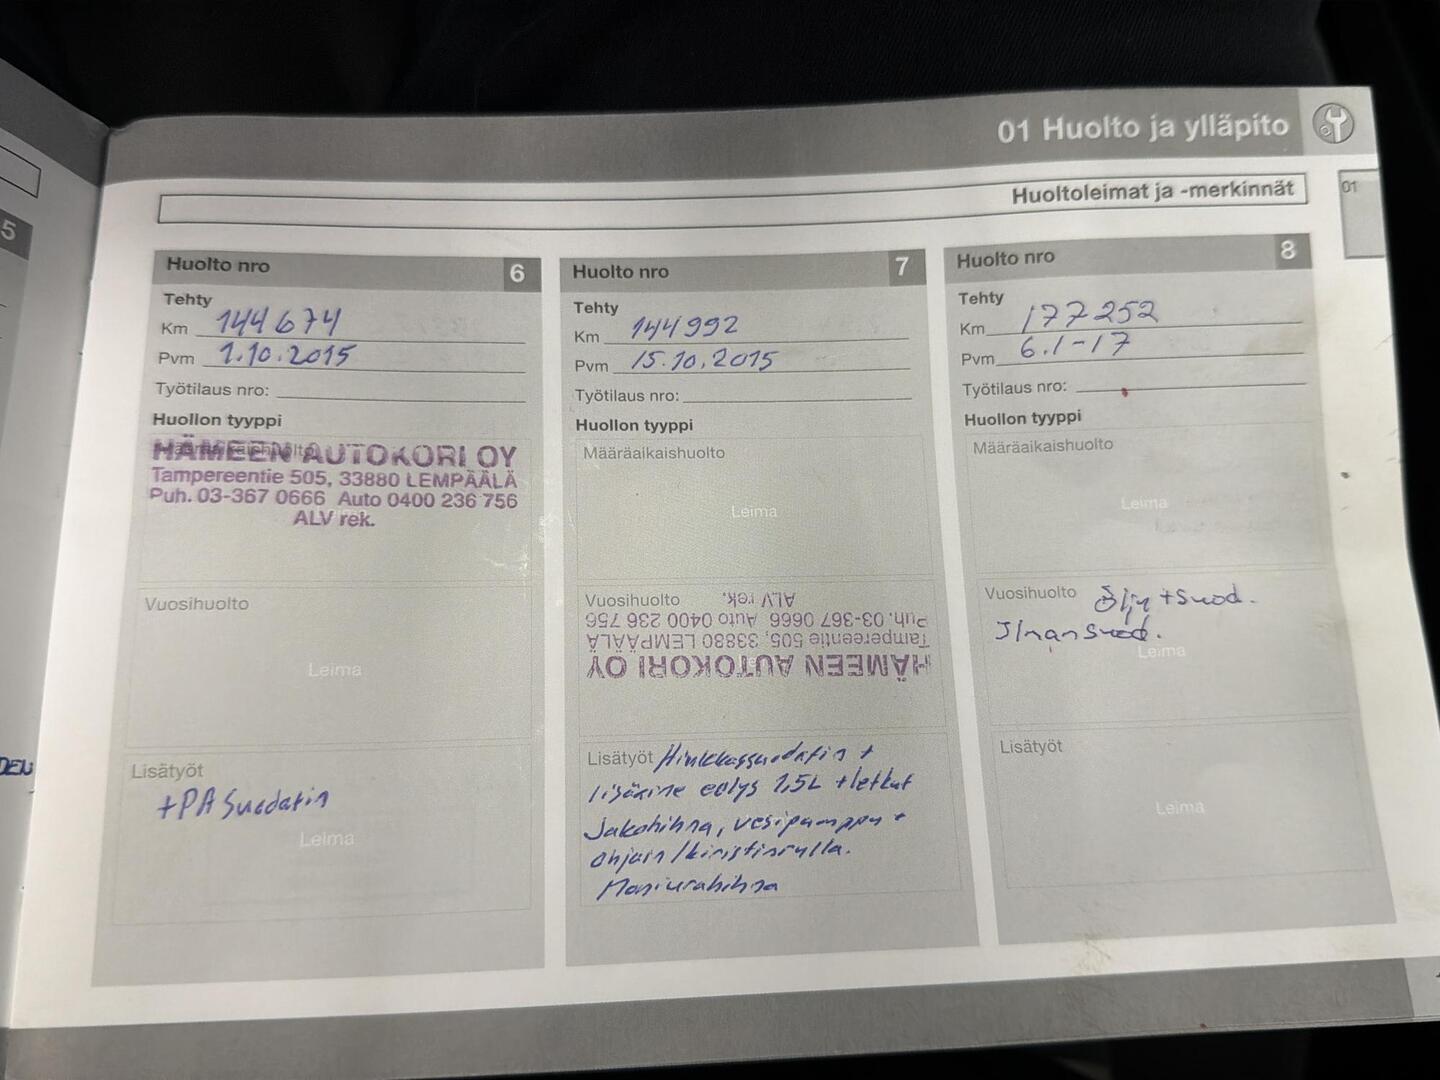 01 Huolto ja ylläpito
Huoltoleimat ja -merkinnät
01
5
DEN
Huolto nro 6
Tehty
Km 144674
Pvm 1.10.2015
Työtilaus nro:
Huollon tyyppi
Määräaikaishuolto
HÄMEEN AUTOKORI OY
Tampereentie 505, 33880 LEMPÄÄLÄ
Puh. 03-367 0666 Auto 0400 236 756
ALV rek.
Vuosihuolto
Leima
Lisätyöt
+PA Suodatin
Leima
Huolto nro 7
Tehty
Km 144992
Pvm 15.10.2015
Työtilaus nro:
Huollon tyyppi
Määräaikaishuolto
Leima
Vuosihuolto
HÄMEEN AUTOKORI OY
Tampereentie 505, 33880 LEMPÄÄLÄ
Puh. 03-367 0666 Auto 0400 236 756
ALV rek.
Lisätyöt Hiukkassuodatin +
lisäaine 1,5L + letkut
Jakohihna, vesipumppu +
ohjain/kiristinrulla.
Moniurahihna
Huolto nro 8
Tehty
Km 177252
Pvm 6.1-17
Työtilaus nro:
Huollon tyyppi
Määräaikaishuolto
Leima
Vuosihuolto Öljy + suod.
Ilmansuod.
Leima
Lisätyöt
Leima